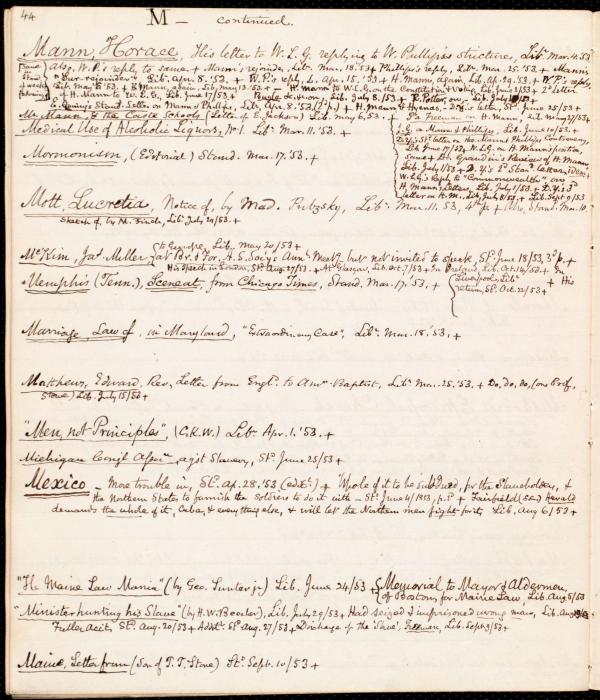 44
M — continued.
Mann, Horace, His letter to W. L. G. replying to W. Phillips's strictures, Lib. Mar. 4. 53
also, W. P.'s reply to same, + Mann's rejoinder, Lib. Mar. 18. 53 + Phillips's reply, Lib. Mar. 25. '53 + Mann's
"Sur-rejoinder" Lib. Apr. 8. '53, + W. P.'s reply, L. Apr. 15. '53 + H. Mann, again, Lib. Ap. 29. '53, + W. P.'s reply,
Lib. May 6. '53 + H. Mann, again, Lib. May 13. 53 + — H. Mann to W. L. G. on the Constitution & Voting Lib. June 3/53 + 2d Letter
of H. Mann to W. L. G., Lib. June 17/53 + Lib. July 8/53 + Potter, on, Lib. July
E. Quincy's Stand. Letter on Mann & Phillips, Lib. Apr. 8. '53 + H. Mann & Hymns, D. Y.'s letter, St. June 25/53 +
Mr. Mann, & the Caste Schools, (Letter of E. Jackson) Lib. May 6, 53. +
Freeman on H. Mann, Lib. May 27/53 +
Medical Use of Alcoholic Liquors, No 1. Lib. Mar. 11. '53. +
L. G. on Mann & Phillips, Lib. June 10/53. +
D. Y.'s St. letter on the Mann & Phillips Controversy,
Lib. June 17/53, W. L. G. on H. Mann's
Mormonism, (Editorial) Stand. Mar. 17. '53. +
same + Dr. Grandin's Review of H. Mann
Lib. July 1/53 + D. Y.'s 2d Stand. Letter,
W. L. G.'s reply to "Commonwealth", on
H. Mann's letters, Lib. July 1/53, + D. Y.'s 3d
Letter on H. M., Lib. July 8/53 + Lib. Sept. 9/53
Mott, Lucretia, Notice of, by Mad. Pulzsky, Lib. Mar. 11. 53, 4th p. + (Also, Stand. Mar. 10.
Sketch of, by M. Finch, Lib. July 29/53. +
McKim, Jas. Miller, to Europe, Lib. May 20/53 +
at Br. & For. A. S. Soc'y's Ann. Meet'g, but not invited to speak, St. June 18/53, 3d p. +
His speech in London, St. Aug. 27/53. + At Glasgow, Lib. Oct. 7/53 + In Ireland, Lib. Oct. 14/53 + In
Liverpool, Lib. + His
return, St. Oct. 22/53 +
Memphis (Tenn.), Scene at, from Chicago Times, Stand. Mar. 17. '53, +
Marriage, Law of, in Maryland, "Extraordinary Case", Lib. Mar. 18. '53, +
Matthews, Edward, Rev., Letter from Engl. to Amn. Baptist, Lib. Mar. 25. '53. + Do, do, do, (on Prof.
Stowe) Lib. July 15/53 +
"Men, not Principles", (C. K. W.) Lib. Apr. 1. '53. +
Michigan Congl. Assocn., agst Slavery, St. June 25/53 +
Mexico — More trouble in, St. Ap. 28. '53 (edl.) + Whole of it to be subdued, for the Slaveholders, &
the Northern States to furnish the soldiers to do it with — St. June 4/1853, p. 1st + Fairfield (S.C.) Herald
demands the whole of it, Cuba, & everything else, & will let the Northern men fight for it, Lib. Aug 6/53 +
"The Maine Law Mania" (by Geo. Sunter jr.) Lib. June 24/53 + Memorial to Mayor & Aldermen
(of Boston, for Maine Law, Lib. Aug 5/53
"Minister hunting his Slave" (by H. W. Beecher), Lib. July 29/53 + Had seized & imprisoned wrong man, Lib. Aug
Fuller Acct., St. Aug. 20/53 + Addl. St. Aug. 27/53 + Discharge of the 'Slave', Freeman, Lib. Sept. 9/53 +
Maine, Letter from (Son of T. T. Stone) St. Sept. 10/53 +